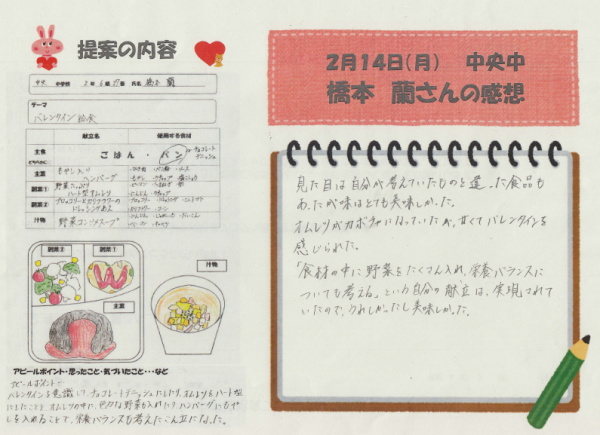 提案の内容
中央 中学校 2年6組 27番 氏名 橋本 蘭
テーマ
バレンタイン給食
献立名
使用する食材
主食
ごはん・パン
チョコレートデニッシュ
主菜
もやし入り
ハンバーグ
副菜①
野菜たっぷり
ハート型オムレツ
副菜②
ブロッコリーとカリフラワーの
ドレッシングあえ
汁物
野菜コンソメスープ
副菜②
副菜①
主菜
汁物
アピールポイント・思ったこと・気づいたこと・・・など
アピールポイント
バレンタインを意識して、チョコレートデニッシュにしたり、オムレツをハート型
にしたこと。オムレツの中に、色々な野菜も入れたり、ハンバーグにもや
しを入れることで、栄養バランスも考えたこん立になった。
2月14日(月) 中央中
橋本 蘭さんの感想
見た目は自分が考えていたものと違った食品も
あったが味はとても美味しかった。
オムレツがカボチャになっていたが、甘くてバレンタインを
感じられた。
「食材の中に野菜をたくさん入れ、栄養バランスに
ついても考える。」という自分の献立は、実現されて
いたので、うれしかったし美味しかった。